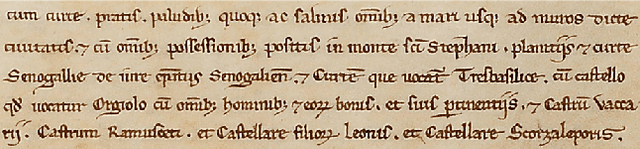 cum curte. pratis. paludib; quoq; ac salinis omib; a mari usq; ad muros dicte
ciuitatis. ⁊ cū omib; possessionib; positis in monte scī Stephani. plantiis ⁊ curte
Senogallie de iure comitatus Senogalien̄. ⁊ Curtē que uocat̄ Tresbasilice. cū castello
qd̄ uocatur Orgiolo cū omib; hominib; ⁊ eoꝝ bonis. et suis ꝑtinentiis. ⁊ Castrū vacca
rii. Castrum Ramusceti. et Castellare filioꝝ leonis. et Castellare Scorzaleporis.